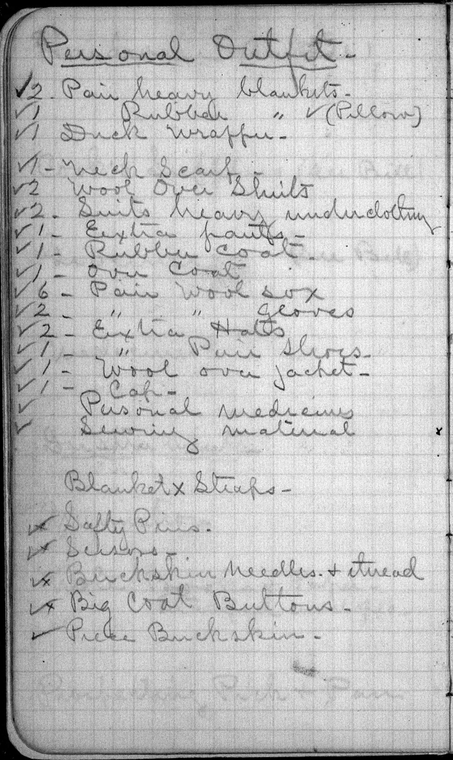 Personal Outfit -
✓2 Pair heavy blankets -
✓1 Rubber " ✓(Pillow)
✓1 Duck Wrapper -
✓1 - Neck Scarf -
✓2 Wool Over Shirts
✓2 - Suits heavy underclothing
✓1 - Extra pants -
✓1 - Rubber Coat
✓1 - Over Coat
✓6 - Pair Wool Sox
✓2 - " " gloves
✓2 - Extra Hatts
✓1 - " Pair Shoes -
✓1 - Wool over jacket -
✓1 - Cap -
✓ Personal medicines
✓ Sewing material
Blanket x Straps -
✓x Safty Pins.
✓x Scisors -
✓x Buckskin Needles. & thread
✓x Big Coat Buttons -
✓ Piece Buckskin -